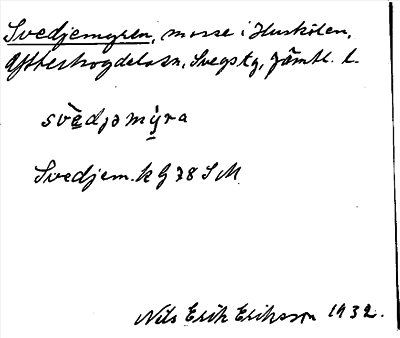 Svedjemyren, mosse i Huskölen,
Ytterhogdals sn, Svegs tg, Jämtl. l.
svèdjəmỳra
Svedjem. k G 78 S M.
Nils Erik Eriksson 1932.